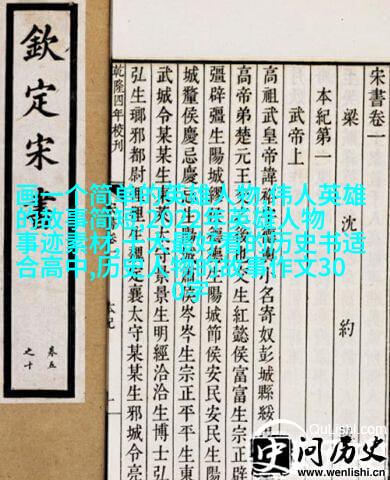 宋書卷一
梁 沈 約
本紀第一
武帝上
高祖武皇帝諱 小名寄奴彭城縣綏
高帝弟楚元王 後也交生紅懿侯富富生
彊辟彊生陽城繆 生陽城節侯安民安民生陽
城釐侯慶忌慶忌 陽城肅侯岑岑生宗正平平生東
武城令某某生東 景景生明經洽洽生博士弘
弘生瑯邪都尉悝悝生 定襄太守某某生邪城令亮
乾隆四年校刊
本紀 一
欽定宋書
卷五
之十
画一个简单的英雄人物,伟人英雄
的故事简短,2022年英雄人物
事迹素材,十大最好看的历史书适
合高中,历史人物的故事作文30
0字
QuLishi.com
史问历史
www.wenlishi.cn